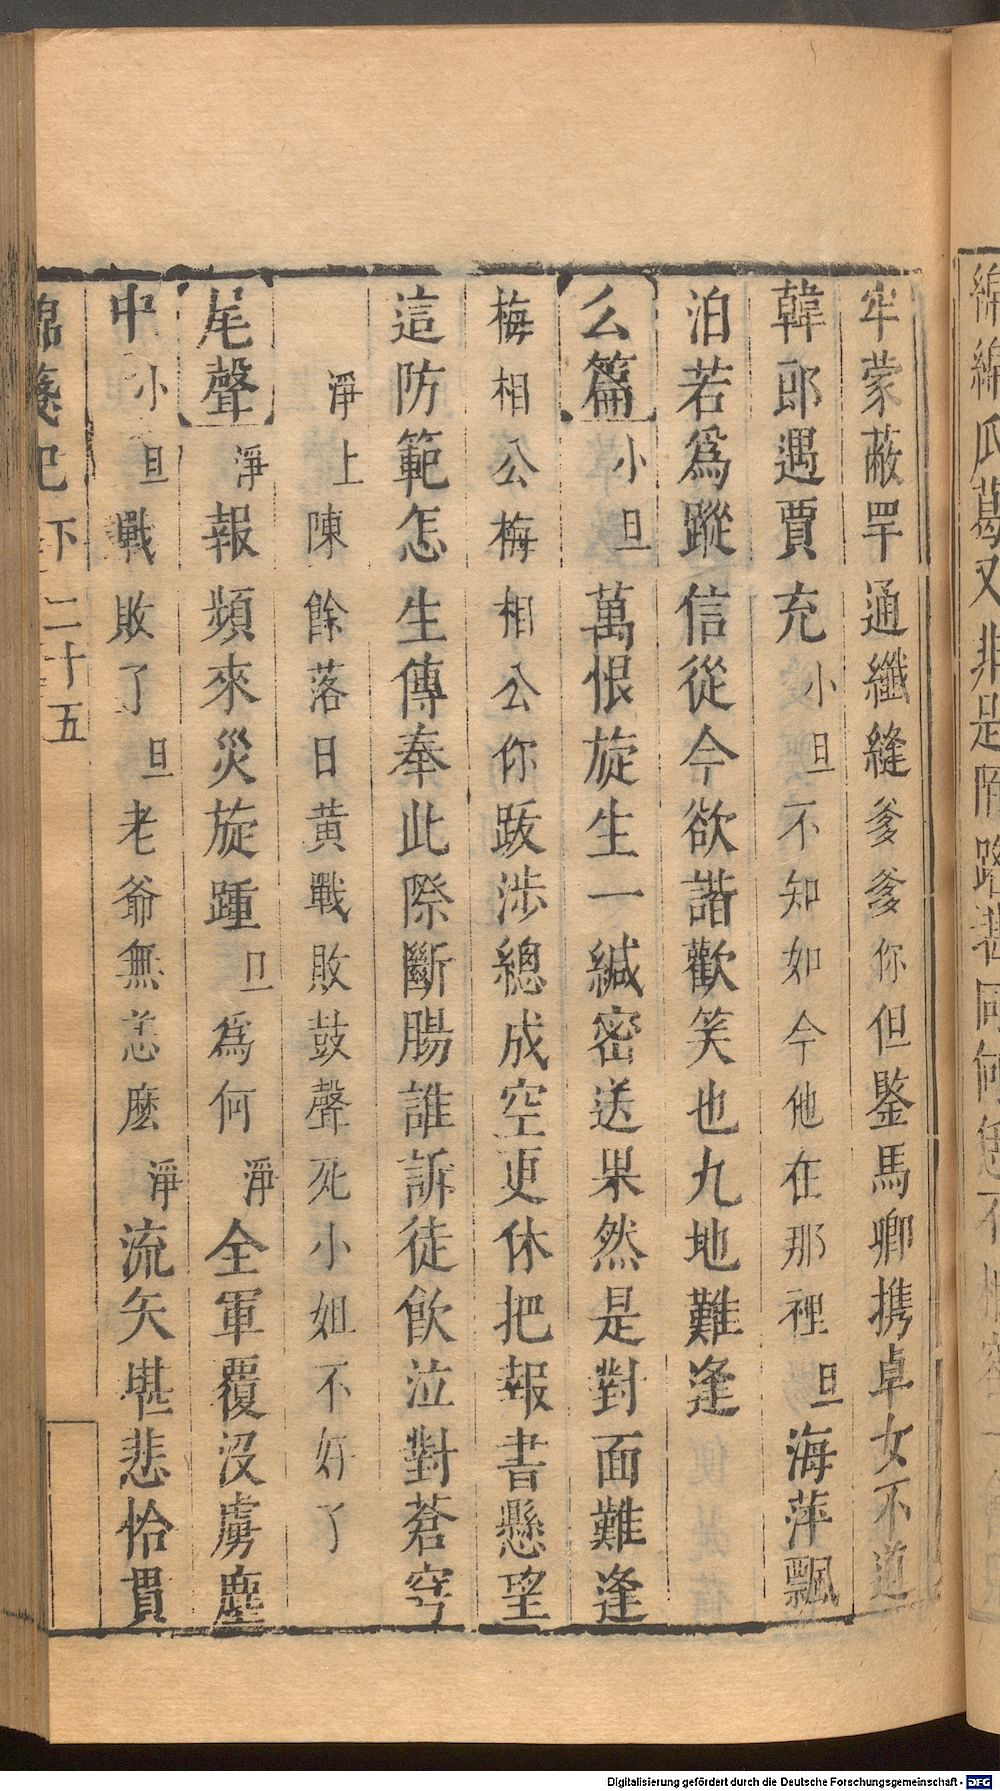 牢蒙蔽罕通纖縫爹爹你但鑒馬卿携卓女不道
韓郎遇賈充小旦不知如今他在那裡旦海萍飄
泊若為蹤信從今欲諧歡笑也九地難逢
么篇小旦萬恨旋生一緘密送果然是對面難逢
梅相公梅相公你跋涉總成空更休把報書懸望
這防範怎生傳奉此際斷腸誰訴徒飲泣對蒼穹
淨上陳餘落日黃戰敗鼓聲死小姐不好了
尾聲淨報頻來災旋踵旦為何淨全軍覆沒虜塵
中小旦戰敗了旦老爺無恙麽淨流矢堪悲恰貫
錦箋記 下 二十五
Digitalisierung gefördert durch die Deutsche Forschungsgemeinschaft - DFG